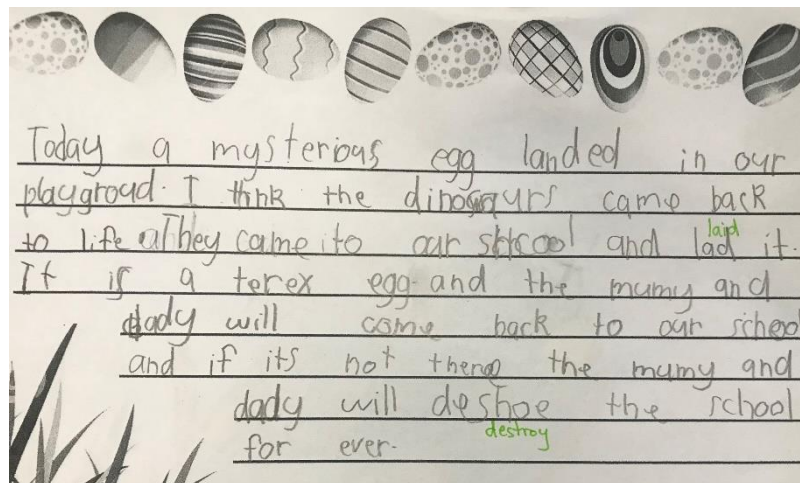 Today a mysterious egg landed in our
playgroud. I think the dinosaurs came back
to life They came to our shcool and lad it.
laid
It is a terex egg and the mumy and
dady will come back to our school
and if its not there the mumy and
dady will deshoe the school
destroy
for ever.